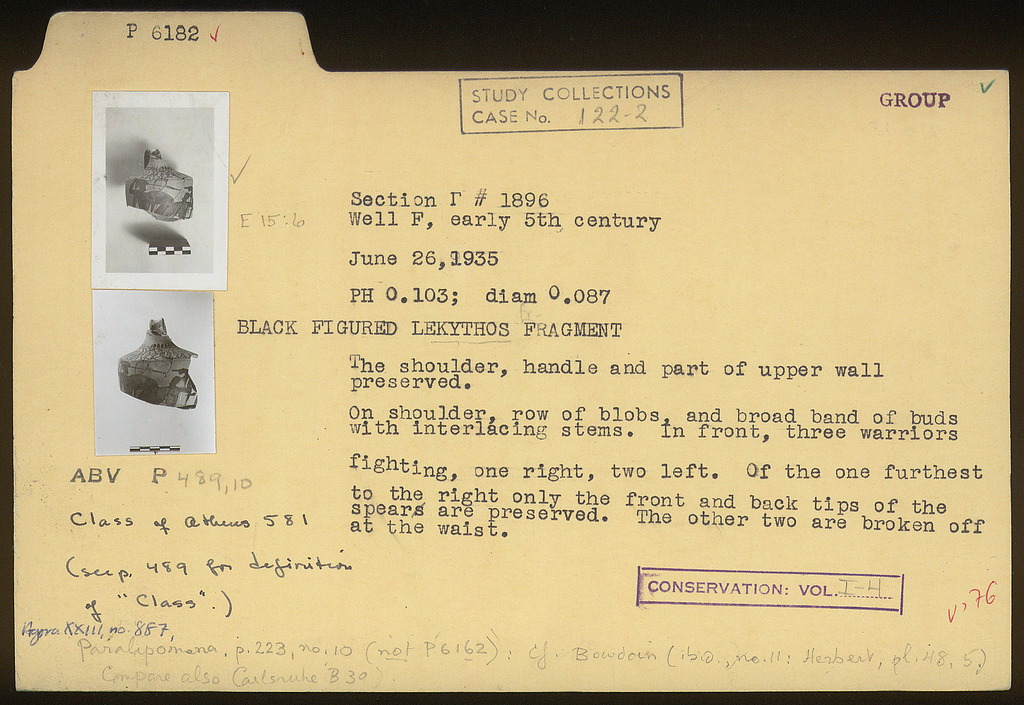 P 6182 ✓
STUDY COLLECTIONS
CASE No. 122-2
GROUP ✓
✓
E 15:6
Section Γ # 1896
Well F, early 5th century
June 26, 1935
PH 0.103; diam 0.087
BLACK FIGURED LEKYTHOS FRAGMENT
fr.
The shoulder, handle and part of upper wall
preserved.
On shoulder, row of blobs, and broad band of buds
with interlacing stems. In front, three warriors
fighting, one right, two left. Of the one furthest
to the right only the front and back tips of the
spears are preserved. The other two are broken off
at the waist.
ABV P 489,10
Class of Athens 581
(see p. 489 for definition
of "Class".)
CONSERVATION: VOL. I-4
✓'76
Agora XXIII, no. 887,
Paralipomena, p. 223, no. 10 (not P6162): cf. Bowdoin (ibid., no. 11: Herbert, pl. 48, 5)
Compare also Carlsruhe B 30).